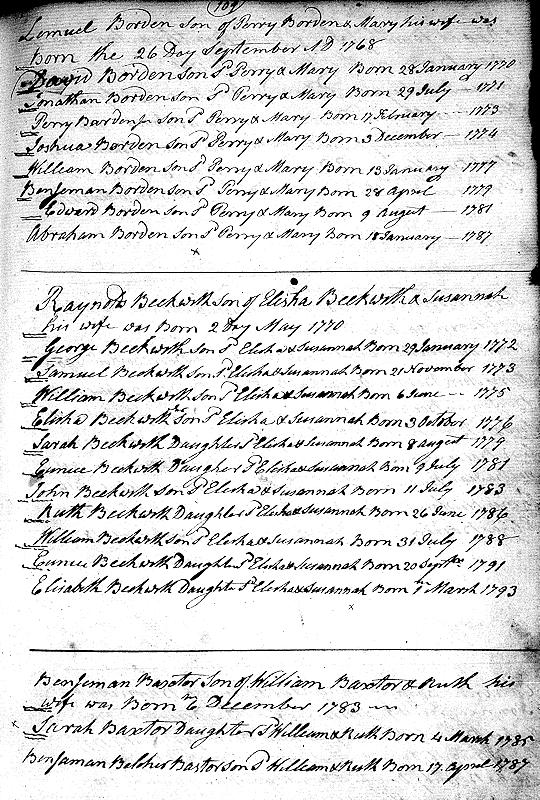 109
Lemuel Borden Son of Perry Borden & Mary his wife was
Born the 26 Day September AD 1768
David Borden Son Do Perry & Mary Born 28 January 1770
Jonathan Borden Son Do Perry & Mary Born 29 July — 1771
Perry Borden Jr Son Do Perry & Mary Born 17 February --- 1773
Joshua Borden Son Do Perry & Mary Born 3 December — 1774
William Borden Son Do Perry & Mary Born 13 January 1777
Benjeman Borden Son Do Perry & Mary Born 28 April 1779
Edward Borden Son Do Perry & Mary Born 9 August — 1781
Abraham Borden Son Do Perry & Mary Born 18 January — 1787
Raynold Beckwith Son of Elisha Beckwith & Susannah
his wife was Born 2 Day May 1770
George Beckwith Son Do Elisha & Susannah Born 29 January 1772
Samuel Beckwith Son Do Elisha & Susannah Born 21 November 1773
William Beckwith Son Do Elisha & Susannah Born 6 June -- 1775
Elisha Beckwith Son Do Elisha & Susannah Born 3 October 1776
Sarah Beckwith Daughter Do Elisha & Susannah Born 8 August 1779
Eunice Beckwith Daugher Do Elisha & Susannah Born 9 July 1781
John Beckwith Son Do Elisha & Susannah Born 11 July 1783
Ruth Beckwith Daughter Do Elisha & Susannah Born 26 June 1786
William Beckwith Son Do Elisha & Susannah Born 31 July 1788
Eunice Beckwith Daughter Do Elisha & Susannah Born 20 Septbr 1791
Elisabeth Beckwith Daughter Do Elisha & Susannah Born 1st March 1793
Benjeman Baxtor Son of William Baxtor & Ruth his
wife was Born December 1783
Sarah Baxtor Daughter Do William & Ruth Born 4 March 1785
Benjaman Belcher Baxtor Son Do William & Ruth Born 17 April 1787